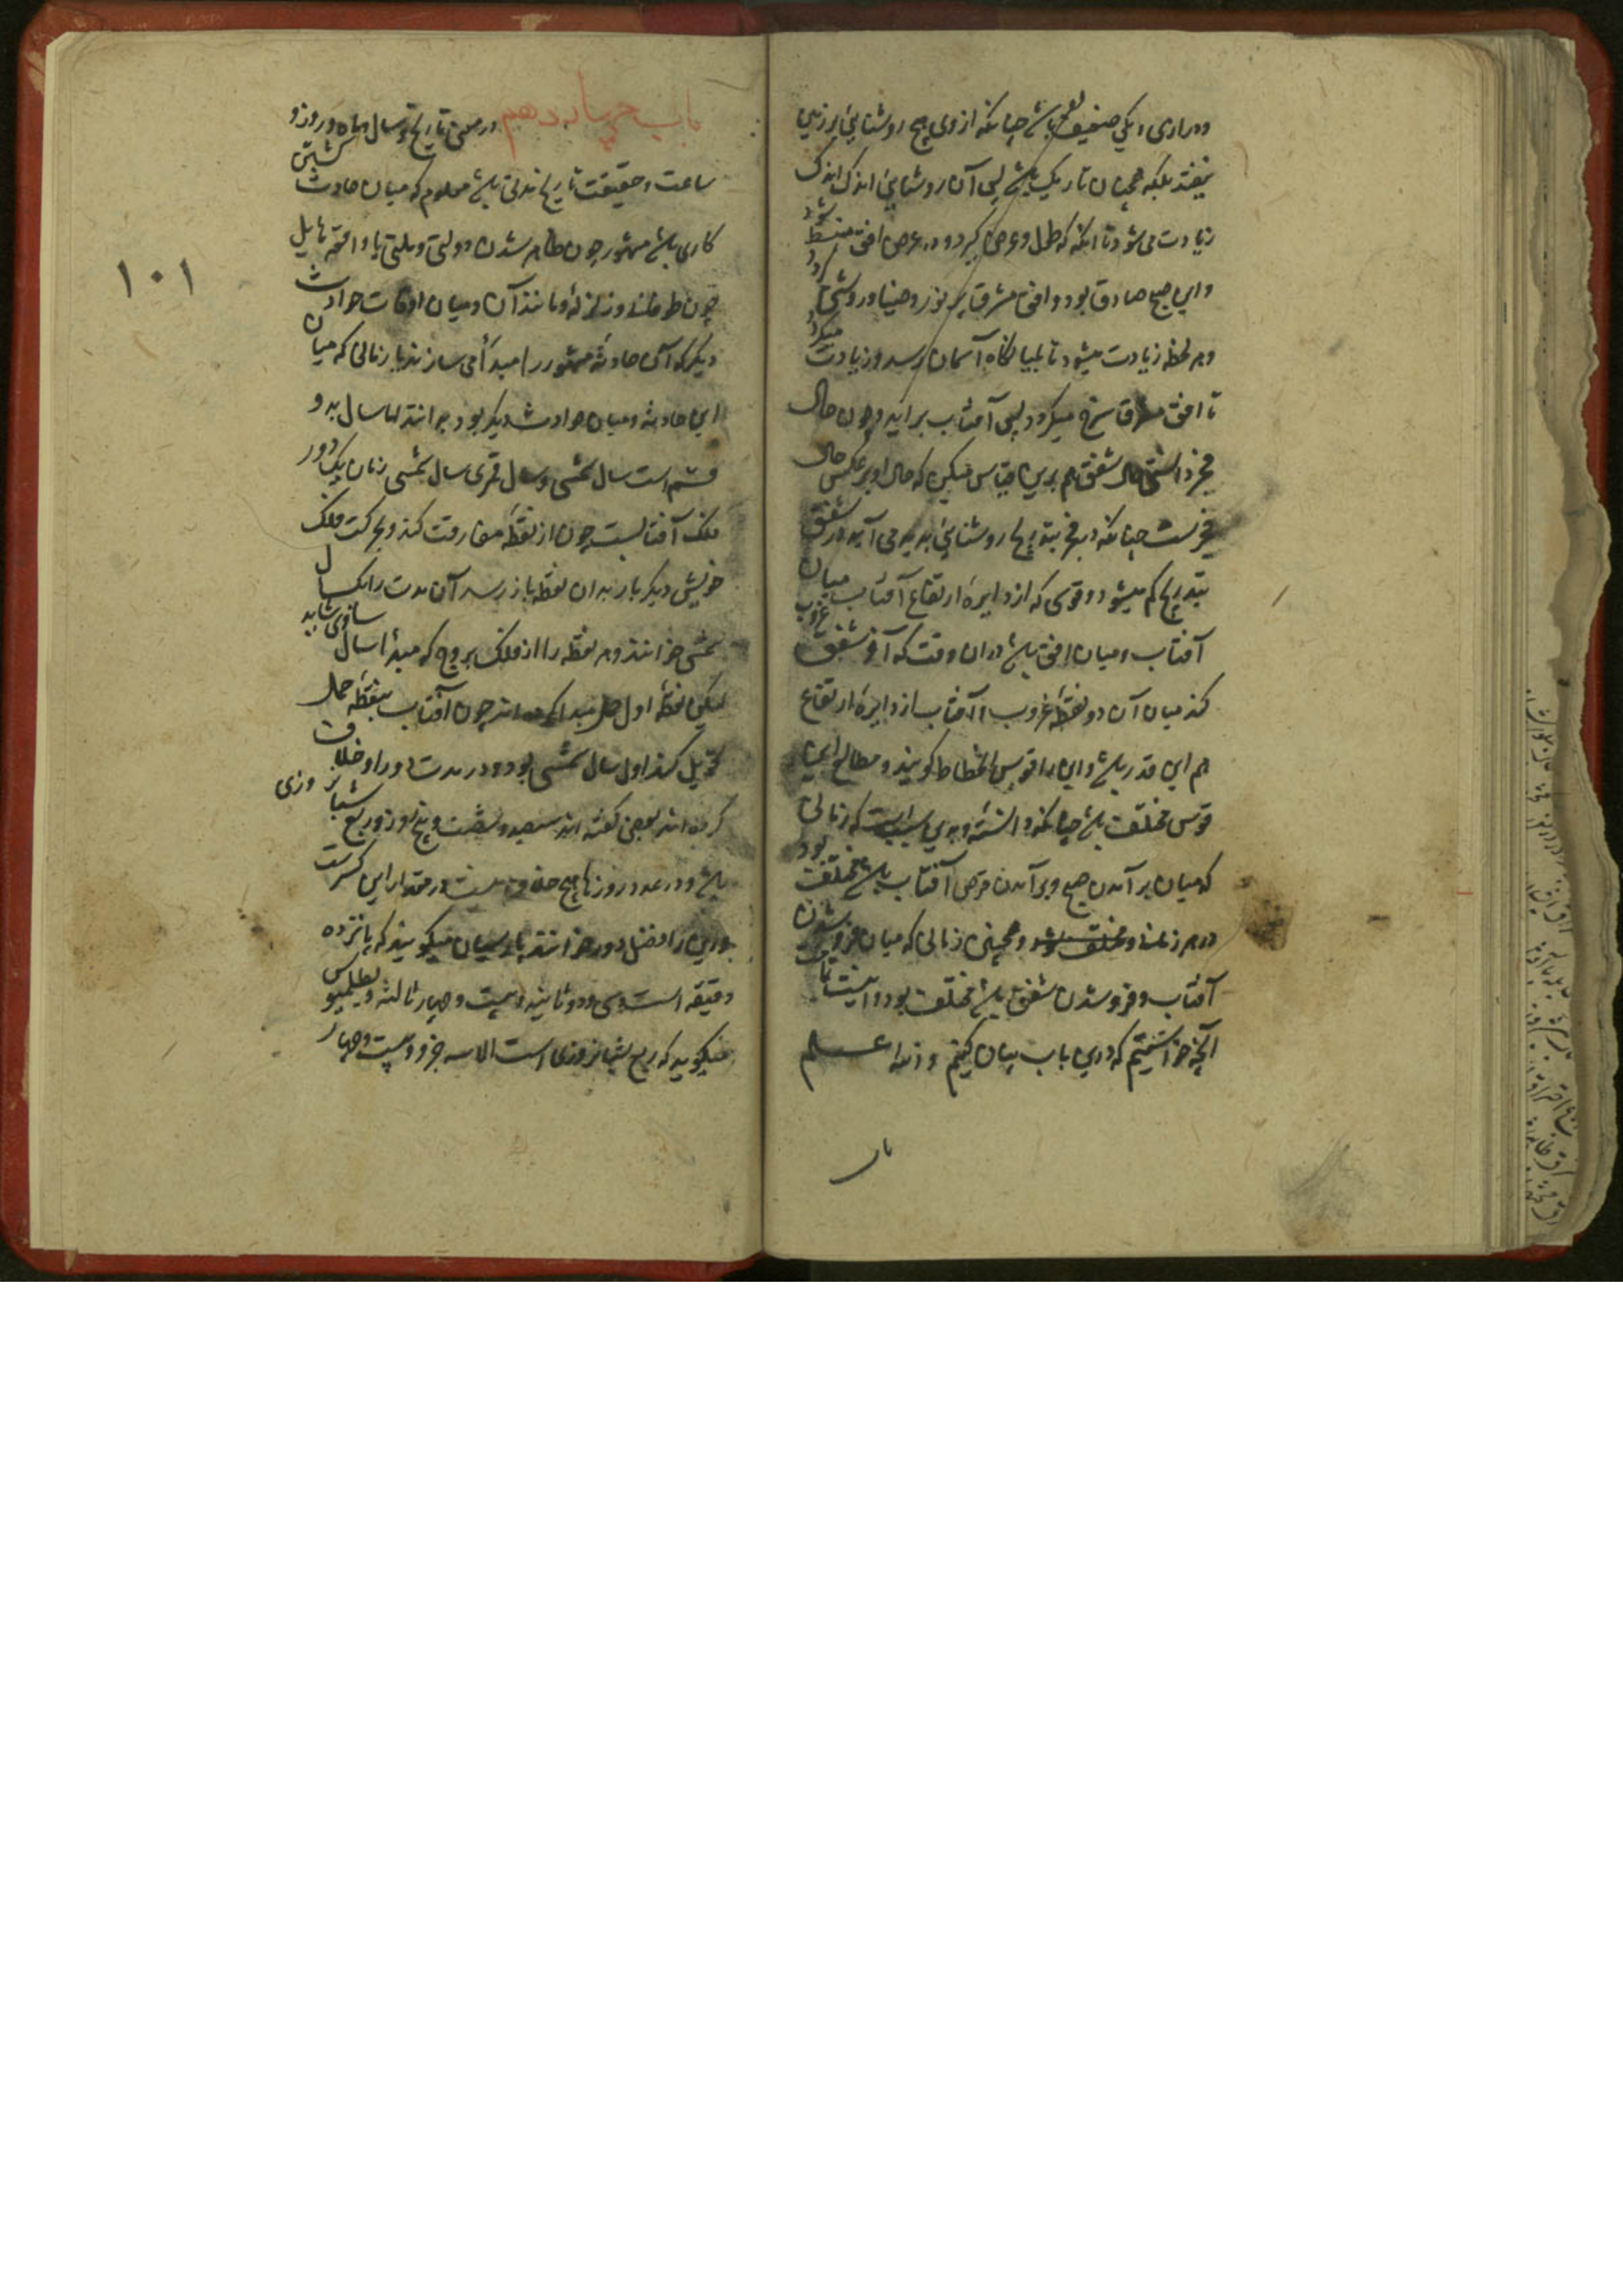 و درازی و لیکن ضعیف باشد چنانکه از وی هیچ روشنایی بر زمین
نیفتد بلکه همچنان تاریک باشد پس آن روشنایی اندک اندک
زیادت می شود تا آنکه که طول و عرض گیرد و در عرض افق منبسط شود
و این صبح صادق بود و افق مشرق پر نور و ضیا و روشنی گردد
و هر لحظه زیادت میشود تا بمیانگاه آسمان رسد و زیادت میگردد
تا افق مشرق سرخ میگردد پس آفتاب براید و چون حال
فجر دانستی حال شفق هم برین قیاس میکن که حال او بر عکس حال
فجرست چنانکه در فجر بتدریج روشنایی پدید می آید در شفق
بتدریج کم میشود و قوسی که از دایره ارتفاع آفتاب میان
آفتاب و میان افق باشد دران وقت که آخر شفق غروب
کند میان آن و نقطه غروب آفتاب از دایره ارتفاع
هم این قدر باشد و این را قوس انحطاط گویند و مطالع این
قوس مختلف باشد چنانکه دانسته و بدین سبب است که زمانی
که میان بر آمدن صبح و بر آمدن قرص آفتاب باشد مختلف بود
در هر زمان و مختلف شود و همچنین زمانی که میان فرو شدن
آفتاب و فرو شدن شفق باشد مختلف بود و اینست
آنچه خواستیم که درین باب بیان کنیم و الله اعلم
با
باب چهاردهم در معنی تاریخ و سال و ماه و روز و
ساعت و حقیقت تاریخ مدتی باشد معلوم که میان حادث گشتن
کاری باشد مشهور چون ظاهر شدن دولتی و ملتی یا واقعه هایل
چون طوفان و زلزله و مانند آن و میان اوقات حوادث
دیگر که آن حادثه مشهور را مبدأ می سازند تا زمانی که میان
این حادثه و میان حوادث دیگر بود بدانند اما سال بدو
قسم است سال شمسی و سال قمری سال شمسی زمان یک دور
فلک آفتابست چون از نقطه مفارقت کند و بحرکت فلک
خویش دیگر بار بدان نقطه باز رسد آن مدت را یکسال
شمسی خوانند و هر نقطه را از فلک بروج که مبدأ سال سازی شاید
لیکن نقطه اول حمل مبدا کرده اند چون آفتاب بنقطه حمل
تحویل کند اول سال شمسی بود و در مدت دور او خلاف
کرده اند بعضی گفته اند سیصد و شصت و پنج روز و ربع شبانروزی
باشد و در عدد روزها هیچ خلاف نیست در مقدار این کسرست
و این را فضل دور خوانند پارسیان میگویند که پانزده
دقیقه است و سی و دو ثانیه و بیست و چهار ثالثه و بطلمیوس
میگوید که ربع شبانروزی است الا سه جزو و بیست و چهار
۱۰۱